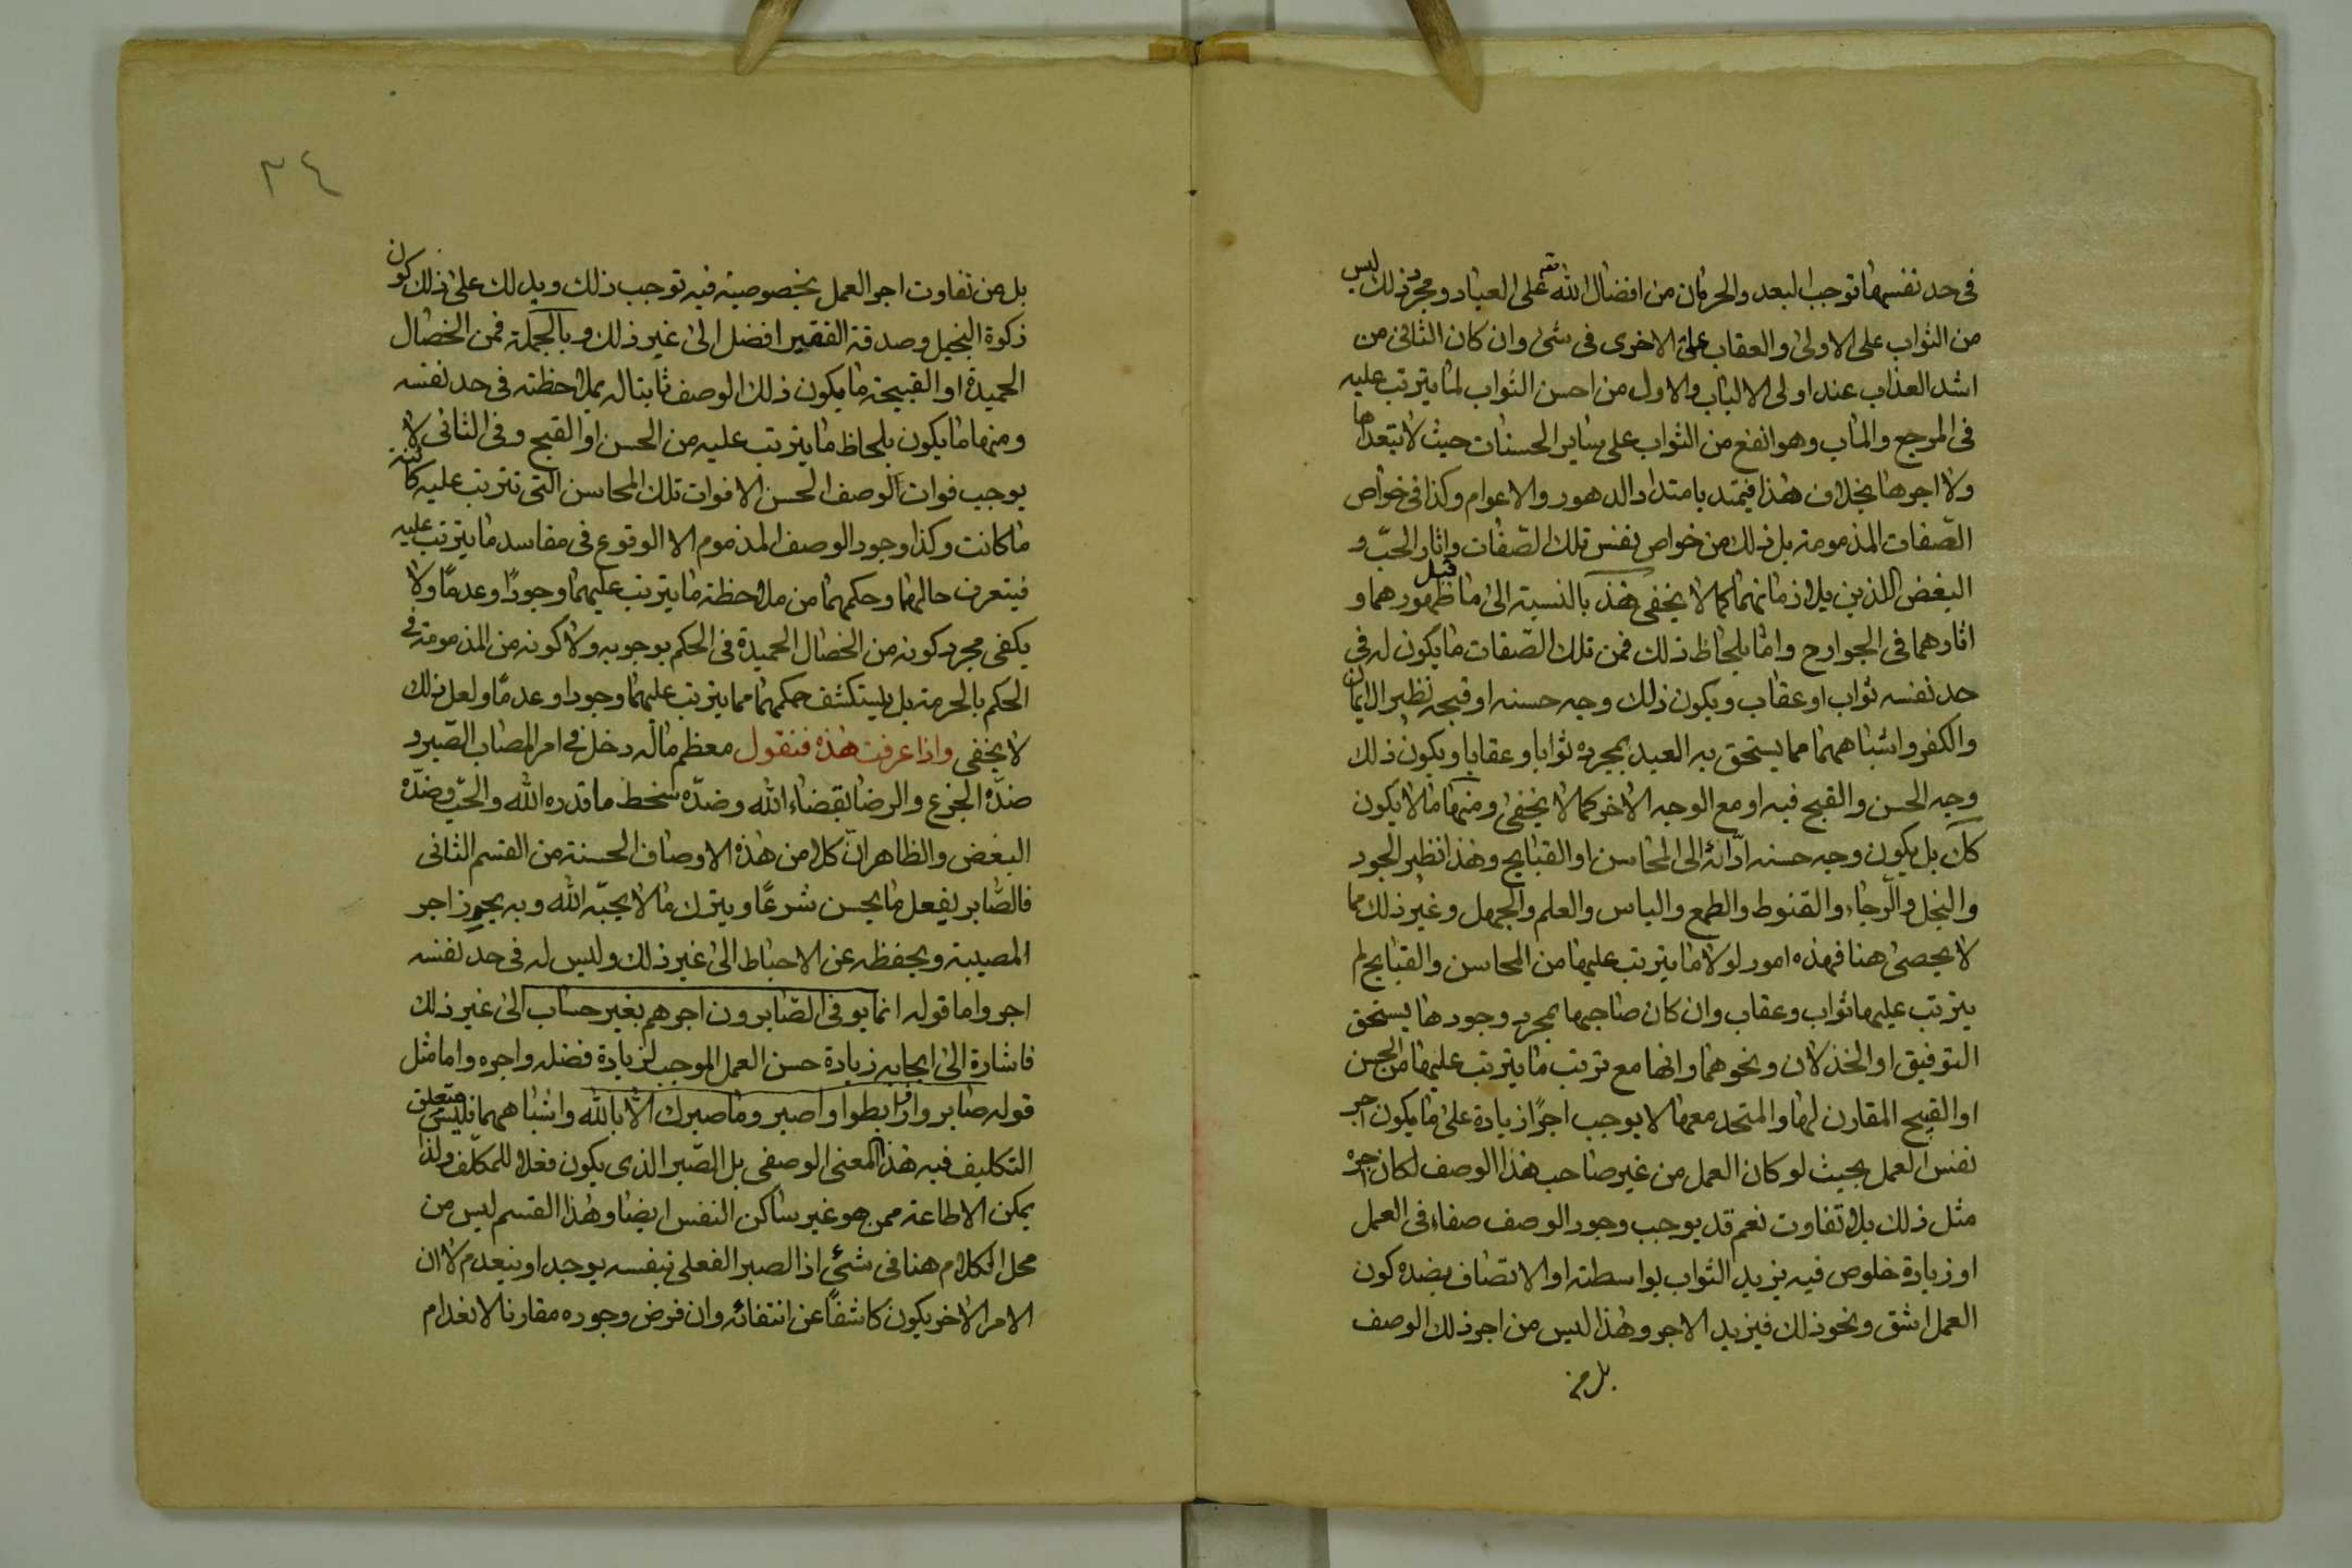 فى حد نفسها توجب البعد والحرمان من افضال الله تعـ على العباد ومجرد ذلك ليس
من الثواب على الاولى والعقاب على الاخرى فى شئ وان كان الثانى من
اشد العذاب عند اولى الالباب والاول من احسن الثواب لما يترتب عليه
فى المرجع والماب وهو انفع من الثواب على ساير الحسنات حيث لا يتعداها
ولا اجرها بخلاف هذا فيمتد بامتداد الدهور والاعوام وكذا فى خواص
الصّفات المذمومة بل ذلك من خواص نفس تلك الصّفات واثار الحبّ و
البغض اللذين يلازمانهما كما لا يخفى هذ بالنسبة الى ما قبل ظهورهما و
اثارهما فى الجوارح واما بلحاظ ذلك فمن تلك الصّفات ما يكون له فى
حد نفسه ثواب او عقاب ويكون ذلك وجه حسنه او قبحه نظير الايمان
والكفر واشباههما مما يستحق به العبد بمجرده ثوابا وعقابا ويكون ذلك
وجه الحسن والقبح فيه او مع الوجه الاخر كما لا يخفى ومنها ما لا يكون
كك بل يكون وجه حسنه ادّائه الى المحاسن او القبايح وهذا نظير الجود
والبخل والرّجاء والقنوط والطمع والياس والعلم والجهل وغير ذلك مما
لا يحصى هنا فهذه امور لولا ما يترتب عليها من المحاسن والقبايح لم
يترتب عليها ثواب وعقاب وان كان صاحبها بمجرد وجودها يستحق
التوفيق او الخذلان ونحوهما وانها مع ترتب ما يترتب عليها من الحسن
او القبيح المقارن لها والمتحد معها لا يوجب اجرًا زيادة على ما يكون اجر
نفس العمل بحيث لو كان العمل من غير صاحب هذا الوصف لكان اجره
مثل ذلك بلا تفاوت نعم قد يوجب وجود الوصف صفاء فى العمل
او زيادة خلوص فيه يزيد الثواب بواسطته او الاتصاف بضده كون
العمل اشق ونحو ذلك فيزيد الاجر وهذا ليس من اجر ذلك الوصف
بل من
٣٤
بل من تفاوت اجر العمل بخصوصية فيه توجب ذلك ويدلك على ذلك كون
زكوة البخيل وصدقة الفقير افضل الى غير ذلك وبالجملة فمن الخصال
الحميدة او القبيحة ما يكون ذلك الوصف ثابتا له بملاحظته فى حد نفسه
ومنها ما يكون بلحاظ ما يترتب عليه من الحسن او القبح وفى الثانى لا
يوجب فوات الوصف الحسن الا فوات تلك المحاسن التى تترتب عليه كائنة
ما كانت وكذا وجود الوصف المذموم الا الوقوع فى مفاسد ما يترتب عليه
فيتعرف حالهما وحكمهما من ملاحظة ما يترتب عليهما وجودًا وعدمًا ولا
يكفى مجرد كونه من الخصال الحميدة فى الحكم بوجوبه ولا كونه من المذمومة فى
الحكم بالحرمة بل يستكشف حكمهما مما يترتب عليهما وجودا وعدمًا ولعل ذلك
لا يخفى واذا عرفت هذه فنقول معظم ماله دخل فى امر المصاب الصّبر و
ضدّه الجزع والرضا بقضاء الله وضدّه سخط ما قدره الله والحبّ وضدّه
البغض والظاهر انّ كلا من هذه الاوصاف الحسنة من القسم الثانى
فالصّابر يفعل ما يحسن شرعًا ويترك ما لا يحبّه الله وبه يحرز اجر
المصيبة ويحفظه عن الاحباط الى غير ذلك وليس له فى حد نفسه
اجر واما قوله انما يوفى الصّابرون اجرهم بغير حساب الى غير ذلك
فاشارة الى ايجابه زيادة حسن العمل الموجب لزيادة فضله واجره واما مثل
قوله صابروا ورابطوا واصبر وما صبرك الّا بالله واشباههما فليس متعلق
التكليف فيه هذا المعنى الوصفى بل الصّبر الذى يكون فعلا للمكلّف ولذا
يمكن الاطاعة ممن هو غير ساكن النفس ايضا وهذا القسم ليس من
محل الكلام هنا فى شئ اذ الصبر الفعلى بنفسه يوجد او ينعدم لا ان
الامر الاخر يكون كاشفًا عن انتفائه وان فرض وجوده مقارنا لانعدام